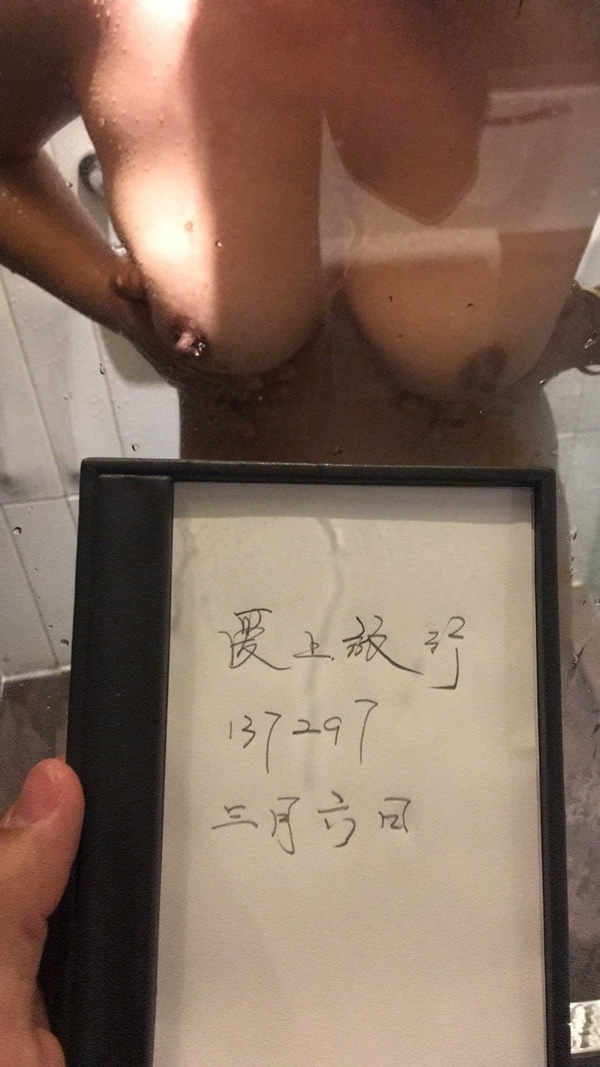 爱上旅行
137297
三月六日